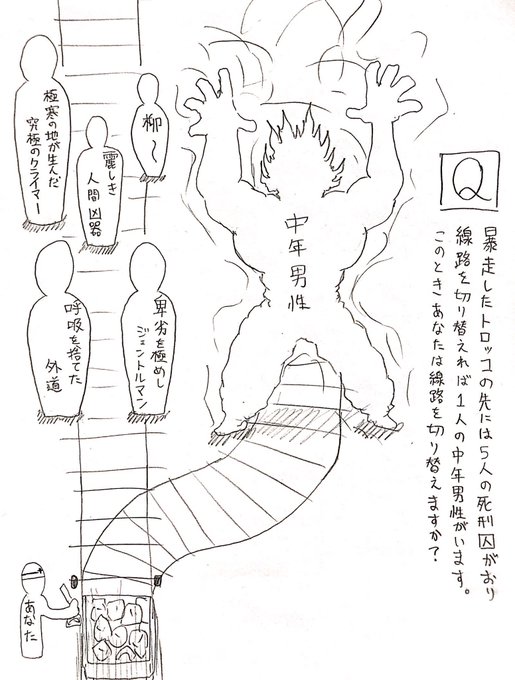 Q
暴走したトロッコの先には5人の死刑囚がおり
線路を切り替えれば1人の中年男性がいます。
このときあなたは線路を切り替えますか?
中年男性
柳~
麗しき
人間凶器
極寒の地が生んだ
究極のクライマー
卑劣を極めし
ジェントルマン
呼吸を捨てた
外道
あなた